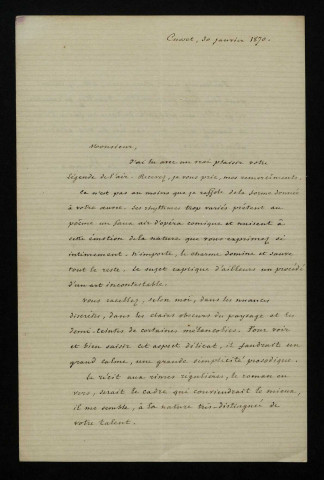 Cusset, 30 janvier 1870.
Monsieur,
J'ai lu avec un vrai plaisir votre
légende de l'air. Recevez, je vous prie, mes remerciements.
Ce n'est pas au moins que je raffole de la forme donnée
à votre œuvre. Ses rhythmes trop variés prêtent au
poème un faux air d'opéra comique et nuisent à
cette émotion de la nature que vous exprimez si
intimement. N'importe, le charme domine et sauve
tout le reste. Le sujet explique d'ailleurs un procédé
d'un art incontestable.
Vous excellez, selon moi, dans les nuances
discrètes, dans les clairs obscurs du paysage et les
demi-teintes de certaines mélancolies. Pour voir
et bien saisir cet aspect délicat, il faudrait un
grand calme, une grande simplicité prosodique.
Le récit aux rimes régulières, le roman en
vers, serait le cadre qui conviendrait le mieux,
il me semble, à la nature très-distinguée de
votre talent.